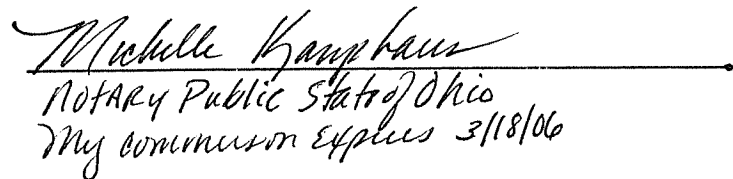 Michelle Kamphaus
Notary Public State of Ohio
My commission Expires 3/18/06